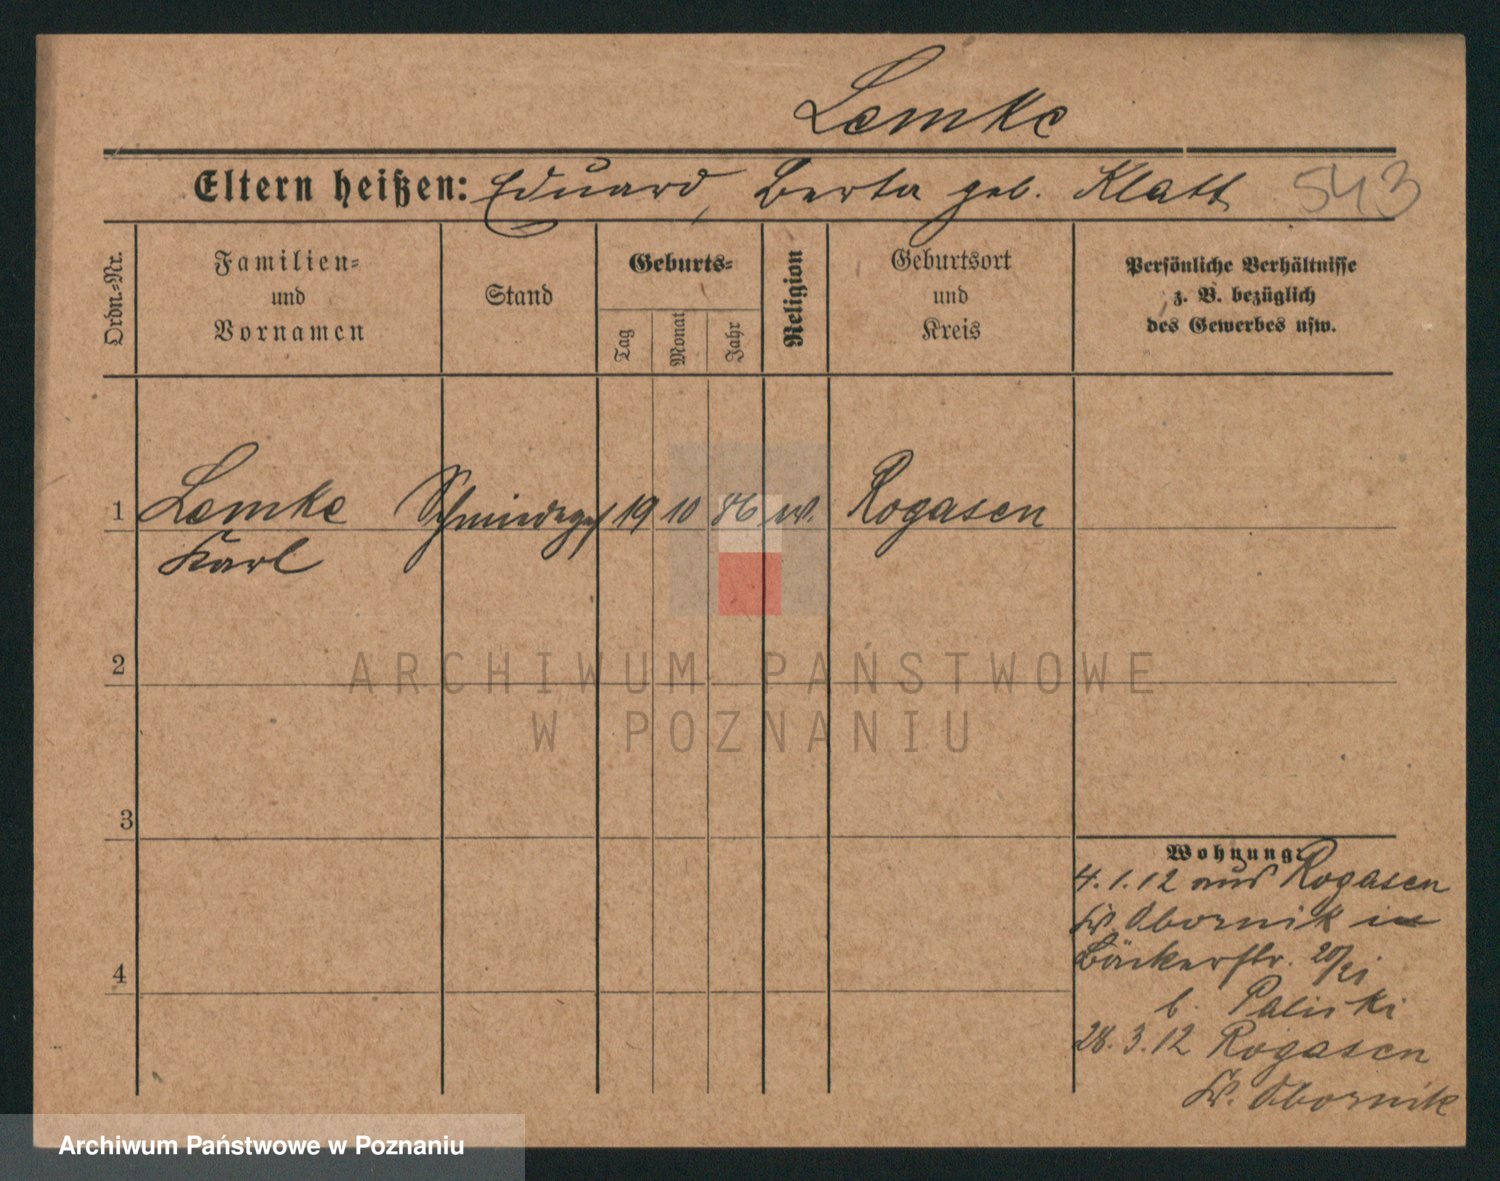 Lemke
Eltern heißen: Eduard, Berta geb. Klatt 543
Ordn.-Nr.
Familien-
und
Vornamen
Stand
Geburts-
Tag
Monat
Jahr
Religion
Geburtsort
und
Kreis
Persönliche Verhältnisse
z. B. bezüglich
des Gewerbes usw.
1 Lemke Schmiedeges 19 10 86 ev. Rogasen
Karl
2
3
4
Wohnung:
4.1.12 aus Rogasen
Kr. Obornik in
Bäckerstr. 20/21
b. Paliski
28.3.12 Rogasen
Kr. Obornik
ARCHIWUM PAŃSTWOWE
W POZNANIU
Archiwum Państwowe w Poznaniu